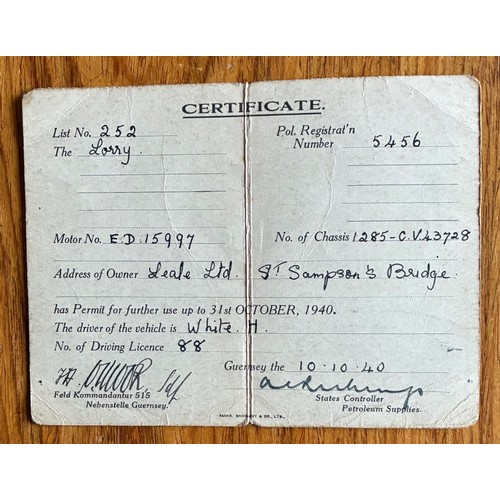 CERTIFICATE.
List No. 252
Pol. Registrat'n
Number 5456
The Lorry.
Motor No. E.D. 15997
No. of Chassis 1285-C.V.43728
Address of Owner Leale Ltd. St Sampson's Bridge.
has Permit for further use up to 31st OCTOBER, 1940.
The driver of the vehicle is White. H.
No. of Driving Licence 88
Guernsey the 10.10.40
Feld Kommandantur 515
Nebenstelle Guernsey.
States Controller
Petroleum Supplies.